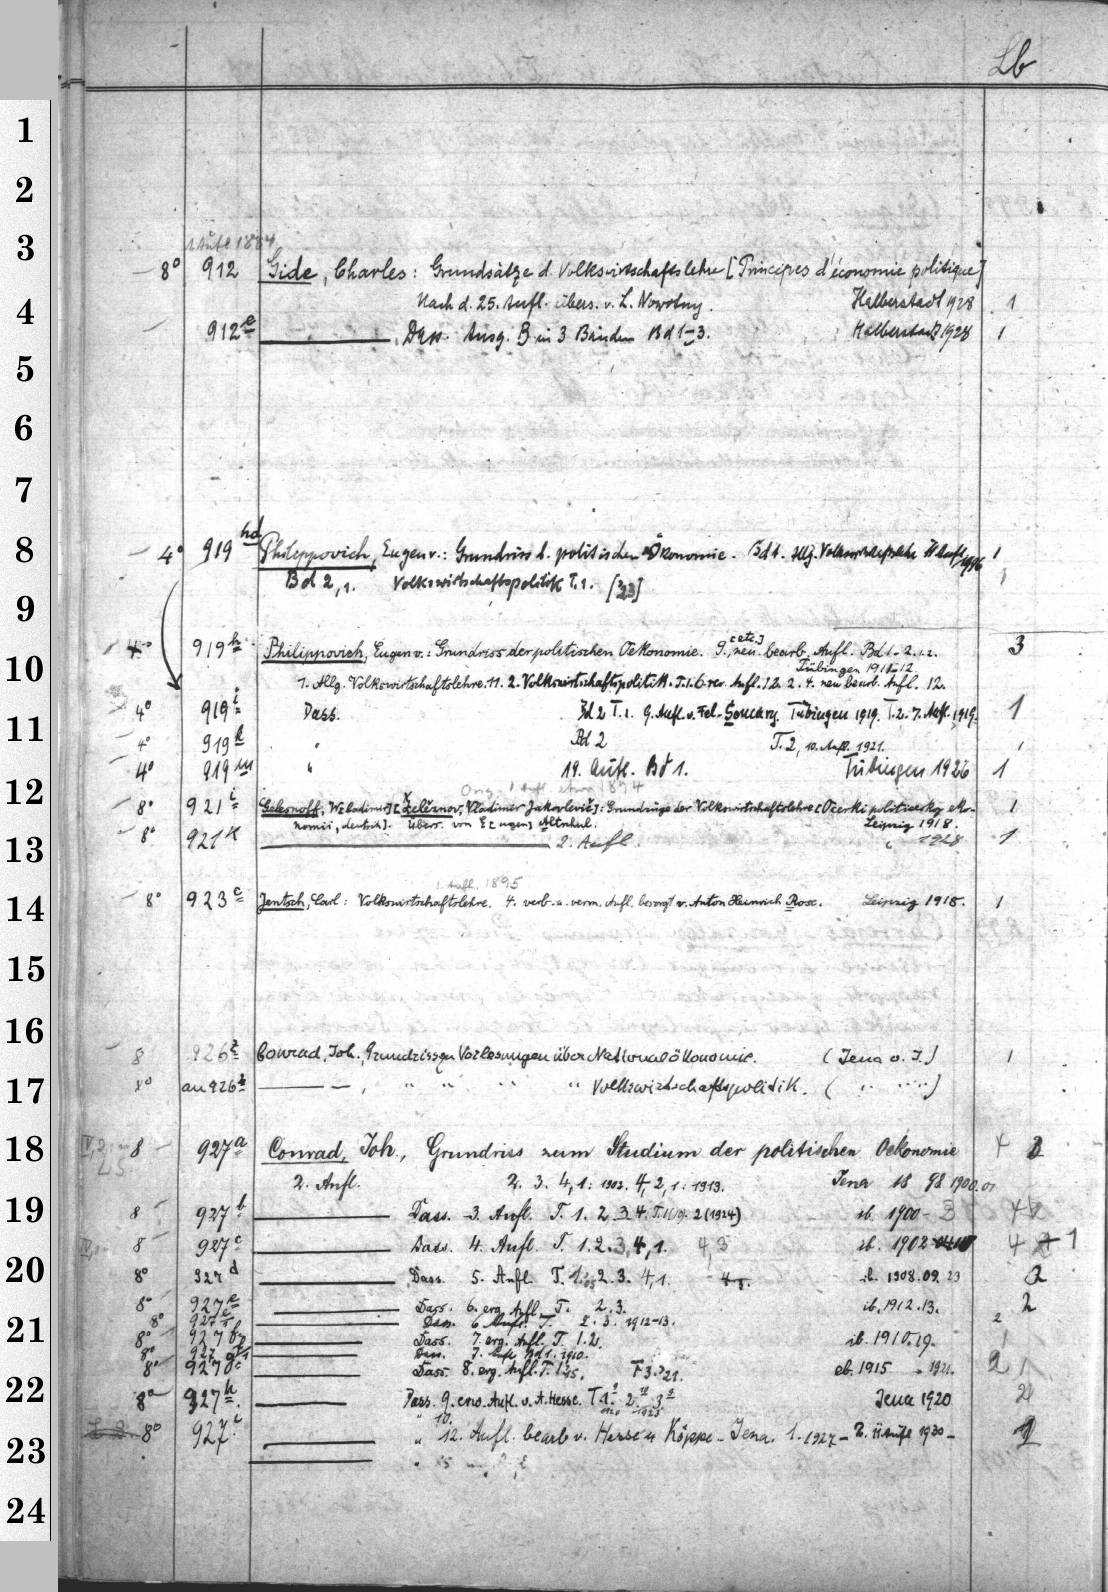 Lb
1
2
1 Aufl 1884
3
8° 912 Gide, Charles: Grundsätze d. Volkswirtschaftslehre [Principes d'économie politique]
4
Nach d. 25. Aufl. übers. v. L. Nowotny. Halberstadt 1928 1
912 e Dass. Ausg. B in 3 Bänden Bd 1-3. Halberstadt 1928 1
5
6
7
8
4° 919 hd Philippovich, Eugen v.: Grundriss d. politischen Ökonomie. Bd 1. Allg. Volkswirtschaftslehre 1916 1
Bd 2,1. Volkswirtschaftspolitik T. 1. [23]
9
4° 919 h Philippovich, Eugen v.: Grundriss der politischen Oekonomie. 9., neu bearb. Aufl. [etc.] Bd 1-2.1.2. 3
10
Tübingen 1911-12
1. Allg. Volkswirtschaftslehre. 11. 2. Volkswirtschaftspolitik. T. 1. 6. rev. Aufl. 12. 2. 4. neu bearb. Aufl. 12.
4° 919 i Dass. Bd 2 T. 1. 9. Aufl. v. Fel. Somary. Tübingen 1919. T. 2. 7. Aufl. 1919. 1
11
4° 919 k " Bd 2 T. 2, 10. Aufl. 1921. 1
4° 919 m " 19. Aufl. Bd 1. Tübingen 1926 1
12
8° 921 i Gelesnoff, W[ladimir] [Železnov, Vladimir Jakovlevič]: Grundzüge der Volkswirtschaftslehre [Očerki političeskoj ėko-
nomii, deutsch]. Übers. von E[ugen] Altschul. Leipzig 1918. 1
13
8° 921 k 2. Aufl. " 1928 1
1. Aufl. 1895
14
8° 923 c Jentsch, Carl: Volkswirtschaftslehre. 4. verb. u. verm. Aufl. besorgt v. Anton Heinrich Rose. Leipzig 1918. 1
15
16
8 926 z Conrad, Joh., Grundriss zu Vorlesungen über Nationalökonomie. (Jena o. J.) 1
17
8° an 926 z " " " " Volkswirtschaftspolitik. ( " " )
18
8 927 a Conrad, Joh., Grundriss zum Studium der politischen Oekonomie
2. Aufl. 2. 3. 4,1: 1902. 4,2,1: 1913. Jena 18 98 1900.01
19
8 927 b Dass. 3. Aufl. T. 1. 2. 3. 4. 2 (1924) ib. 1900-
8 927 c Dass. 4. Aufl. T. 1. 2. 3, 4, 1. 4,3 ib. 1902 4 1
20
8° 927 d Dass. 5. Aufl. T. 1. 2. 3. 4,1. ib. 1908.09. 2
8° 927 e Dass. 6. erg. Aufl. T. 2. 3. ib. 1912.13. 2
8° Dass. 6 Aufl. T. 2. 3. 1912-13. 2
21
8° 927 Dass. 7. erg. Aufl. T. 1. 2. ib. 1910.19.
8° 927 Dass. 7. Aufl. Bd 1. 1910.
8° 927 Dass. 8. erg. Aufl. T. 1. T 3. 21. eb. 1915 1921.
22
8° 927 h. Dass. 9. erw. Aufl. v. A. Hesse. T. 1. 2. 3 Jena 1920 2
10.
8° 927 i " 12. Aufl. bearb v. Hesse u Köppe - Jena. 1. 1927 - 2. 11 Aufl 1930 - 1
23
24